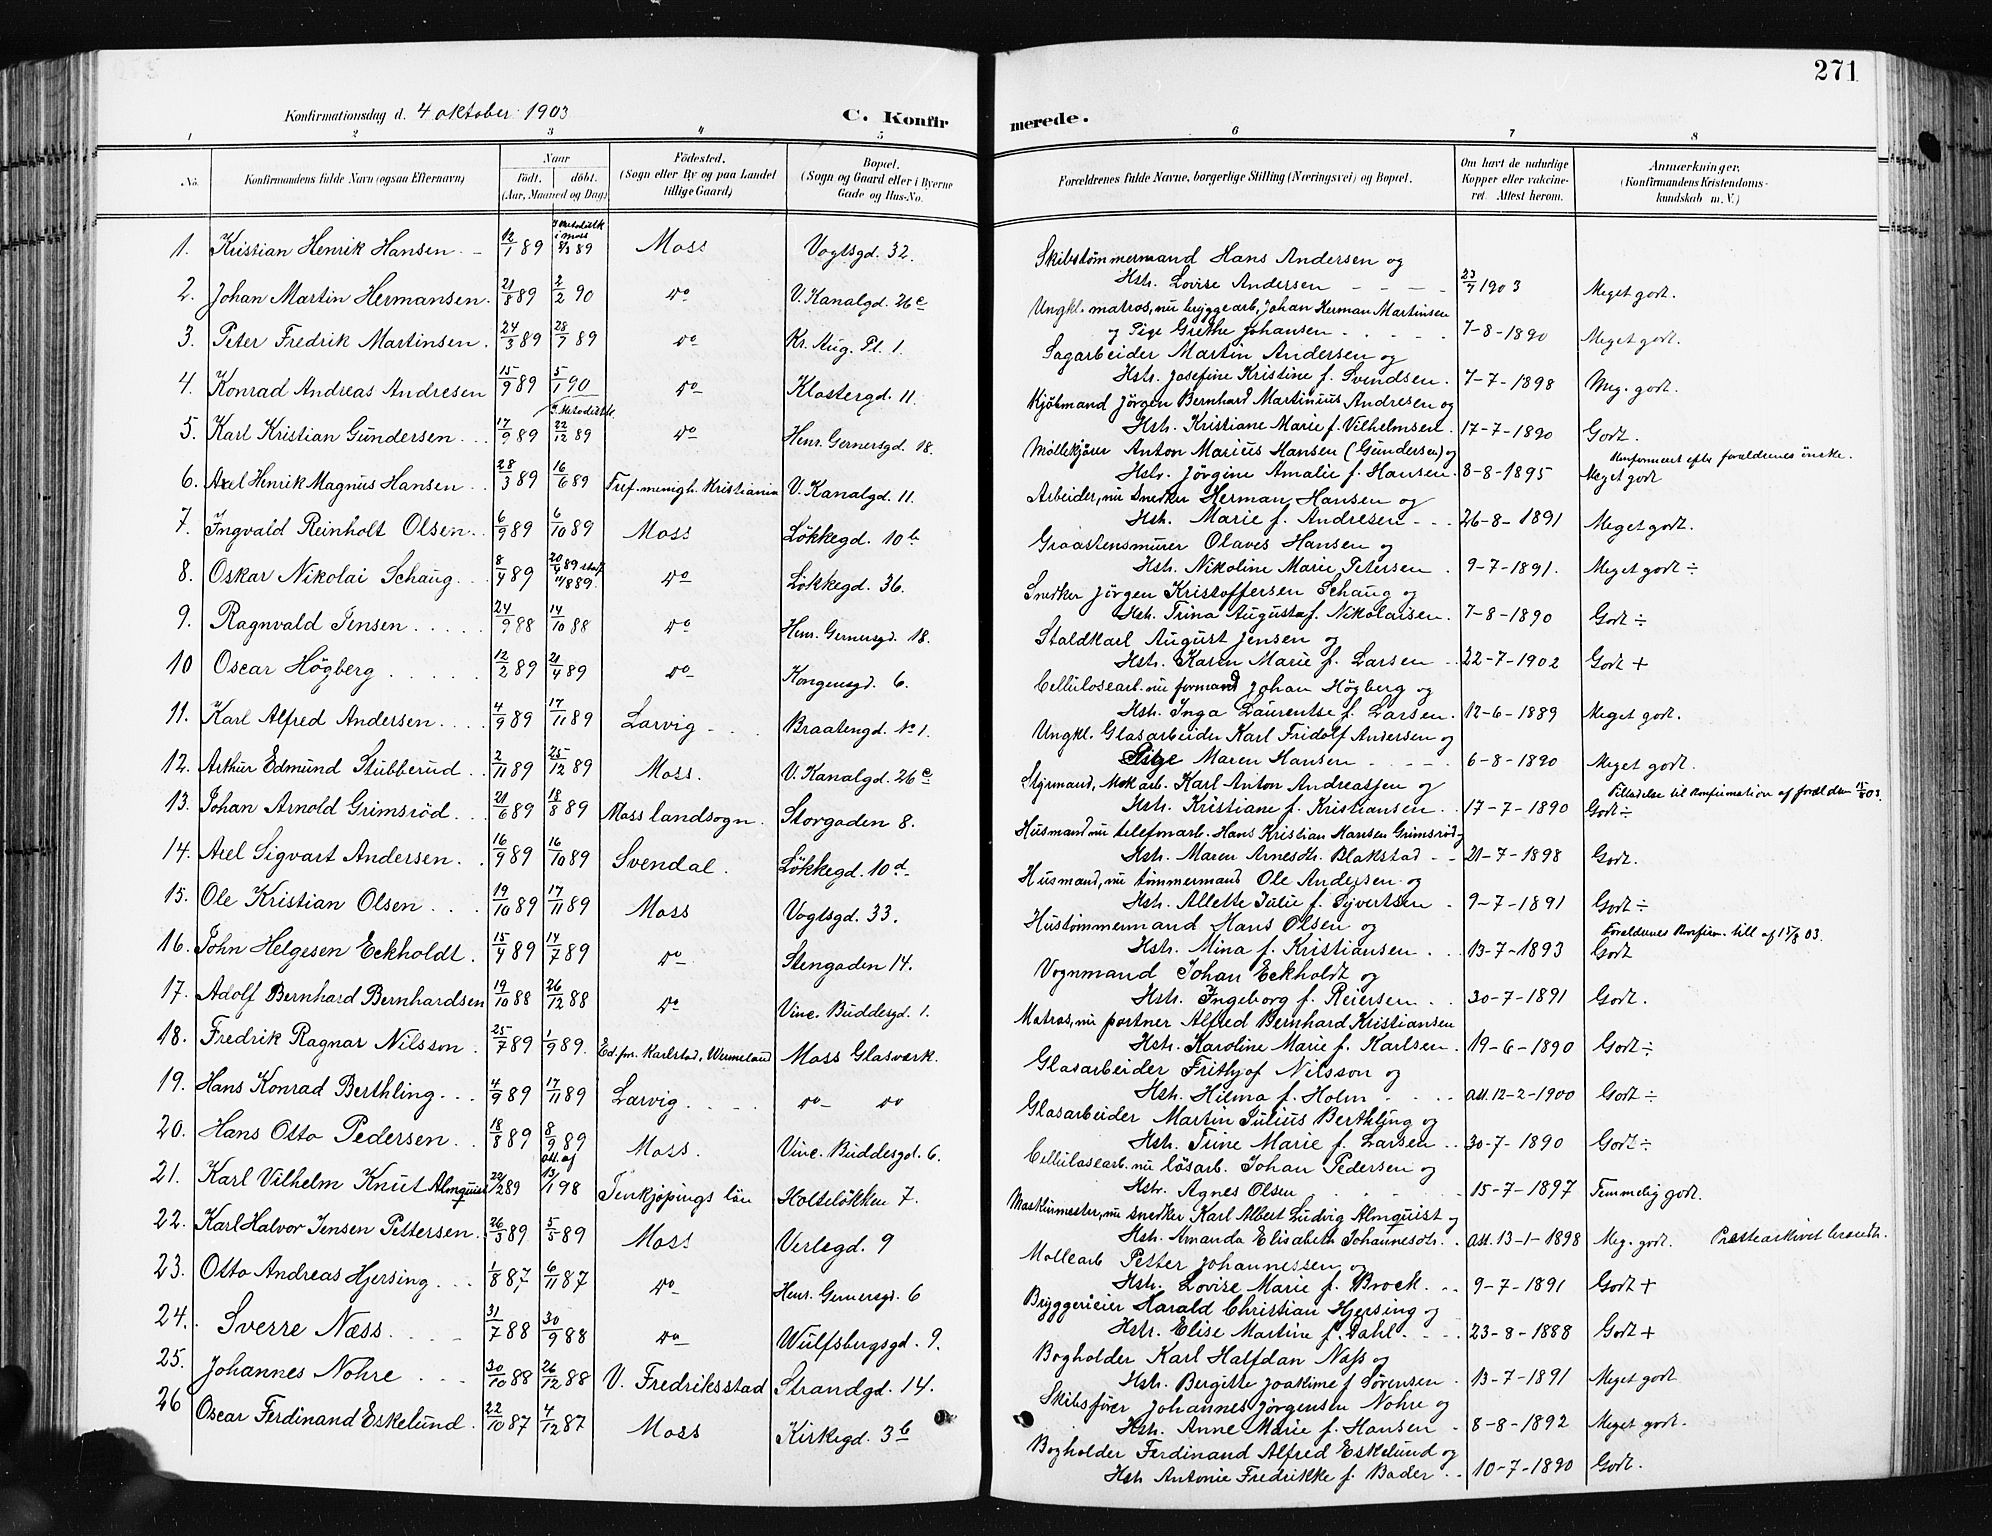 271
Konfirmationsdag d. 4 oktober 1903
C. Konfir
merede.
1 2 3 4 5 6 7 8
No. Konfirmandens fulde Navn (ogsaa Efternavn) Naar Födt. döbt. (Aar, Maaned og Dag) Födested. (Sogn eller By og paa Landet tillige Gaard) Bopæl. (Sogn og Gaard eller i Byerne Gade og Hus-No. Forældrenes fulde Navne, borgerlige Stilling (Næringsvei) og Bopæl. Om havt de naturlige Kopper eller vakcineret. Attest herom. Anmærkninger. (Konfirmandens Kristendomskundskab m. V.)
1. Kristian Henrik Hansen 12/1 89 i Moss 89 Moss Vogtsgd. 32. Skibstömmermand Hans Andersen og
Hst. Lovise Andersen 23/7 1903 Meget godt.
2. Johan Martin Hermansen. 21/8 89 2/2 90 Do V. Kanalgd. 26c Ungkl. matros, nu bryggearb, Johan Herman Martinsen
og Pige Grethe Johansen 7-8-1890 Meget godt.
3. Peter Fredrik Martinsen. 24/3 89 28/7 89 Do Kr. Aug. Pl. 1. Sagarbeider Martin Andersen og
Hst. Josefine Kristine f. Svendsen. 7-7-1898 Meg. godt.
4. Konrad Andreas Andresen 15/9 89 5/1 90 Do Klostergd. 11. Kjötmand Jörgen Bernhard Martinius Andresen og
Hst. Kristiane Marie f. Vilhelmsen. 17-7-1890 Godt.
5. Karl Kristian Gundersen 17/9 89 22/12 89 Do Henr. Gernersgd. 18. Möllekjörer Anton Marius Hansen (Gundersen) og
Hstr. Jörgine Amalie f. Hansen. 8-8-1895 Meget godt Konfirmeret efter forældrenes önske.
6. Axel Henrik Magnus Hansen 28/3 89 16/6 89 Tref. menigh. Kristiania V. Kanalgd. 11. Arbeider, nu Snedker Herman Hansen og
Hst. Marie f. Andresen 26-8-1891 Meget godt.
7. Ingvald Reinholt Olsen 6/9 89 6/10 89 Moss Lökkegd. 10b Graastensmurer Olaves Hansen og
Hst. Nikoline Marie Petersen 9-7-1891. Meget godt ÷
8. Oskar Nikolai Schaug 8/4 89 Do Lökkegd. 36. Snedker Jörgen Kristoffersen Schaug og
Hst. Trina Augusta f. Nikolaisen. 7-8-1890 Godt ÷
9. Ragnvald Jensen 24/9 88 14/10 88 Do Henr. Gernersgd. 18. Staldkarl August Jensen og
Hst. Karen Marie f. Larsen 22-7-1902 Godt +
10 Oscar Högberg 12/2 89 21/4 89 Do Kongensgd. 6. Cellulosearb. nu formand Johan Högberg og
Hst. Inga Laurentse f. Larsen. 12-6-1889 Meget godt.
11. Karl Alfred Andersen 4/9 89 17/11 89 Larvig Braatengd. No 1. Ungkl. Glasarbeider Karl Fridolf Andersen og
Pige Maren Hansen 6-8-1890 Meget godt.
12. Arthur Edmund Stubberud 2/11 89 25/12 89 Moss. V. Kanalgd. 26c Styrmand, Mek arb. Karl Anton Andreassen og
Hst. Kristiane f. Kristiansen 17-7-1890 Godt ÷ Tilladelse til Konfirmation af forældrene 03.
13. Johan Arnold Grimsröd 21/6 89 18/8 89 Moss landsogn. Storgaden 8. Husmand nu telefonarb. Hans Kristian Hansen Grimsröd og
Hst. Maren Arnesdtr. Blakstad 21-7-1898 Godt.
14. Axel Sigvart Andersen 16/9 89 16/10 89 Svendal. Lökkegd. 10d Husmand, nu tömmermand Ole Andersen og
Hst. Allette Julie f. Syvertsen 9-7-1891 Godt ÷
15. Ole Kristian Olsen 19/10 89 17/11 89 Moss Vogtsgd. 33. Hustömmermand Hans Olsen og
Hst. Mina f. Kristiansen 13-7-1893 Godt Forældrenes Konfirm. till af 15/8 03.
16. John Helgesen Eckholdt. 15/4 89 14/7 89 Do Stengaden 14. Vognmand Johan Eckholdt og
Hst. Ingeborg f. Reiersen 30-7-1891 Godt.
17. Adolf Bernhard Bernhardsen 19/10 88 26/12 88 Do Vinc. Buddesgd. 1. Matros, nu portner Alfred Bernhard Kristiansen
Hst. Karoline Marie f. Karlsen. 19-6-1890 Godt ÷
18. Fredrik Ragnar Nilsson 25/7 89 1/9 89. Ed. for. Karlstad, Wermeland Moss Glasværk. Glasarbeider Frithjof Nilsson og
Hst. Hilma f. Holm att. 12-2-1900 Godt ÷
19. Hans Konrad Berthling 4/9 89 17/11 89 Larvig Do Do Glasarbeider Martin Julius Berthling og
Hst. Trine Marie f. Larsen 30-7-1890 Godt ÷
20. Hans Otto Pedersen 18/8 89 8/9 89 Moss. Vinc. Buddesgd. 6. Cellulosearb. nu lösarb. Johan Pedersen og
Hstr. Agnes Olsen 15-7-1897 Temmelig godt.
21. Karl Vilhelm Knut Almquist 22/2 89 att. af 13/1 98 Jenkjöpings län Holtelökken 7. Maskinmester, nu snedker Karl Albert Ludvig Almquist og
Hst. Amanda Elisabeth Johannesdtr. att. 13-1-1898 Meg. godt. Prestearkivet brændt.
22. Karl Halvor Jensen Pettersen 26/3 89 5/5 89 Moss Verlegd. 9 Möllearb Petter Johannessen og
Hst. Lovise Marie f. Brock 9-7-1891 Godt +
23. Otto Andreas Hjersing 1/8 87 6/11 87 Do Henr. Gernersgd. 6 Bryggerieier Harald Christian Hjersing og
Hst. Elise Martine f. Dahl. 23-8-1888 Godt +
24. Sverre Næss 31/7 88 30/9 88 Do Wulfsbergsgd. 9. Bogholder Karl Halfdan Næss og
Hst. Bergitte Joakime f. Sörensen 13-7-1891 Meget godt
25. Johannes Nohre 30/10 88 26/12 88 V. Fredriksstad Strandgd. 14. Skibsförer Johannes Jörgensen Nohre og
Hst. Anne Marie f. Hansen 8-8-1892 Meget godt.
26 Oscar Ferdinand Eskelund 22/10 87 4/12 87 Moss Kirkegd. 3b Bogholder Ferdinand Alfred Eskelund og
Hst. Antonie Fredrikke f. Bader 10-7-1890 Godt.